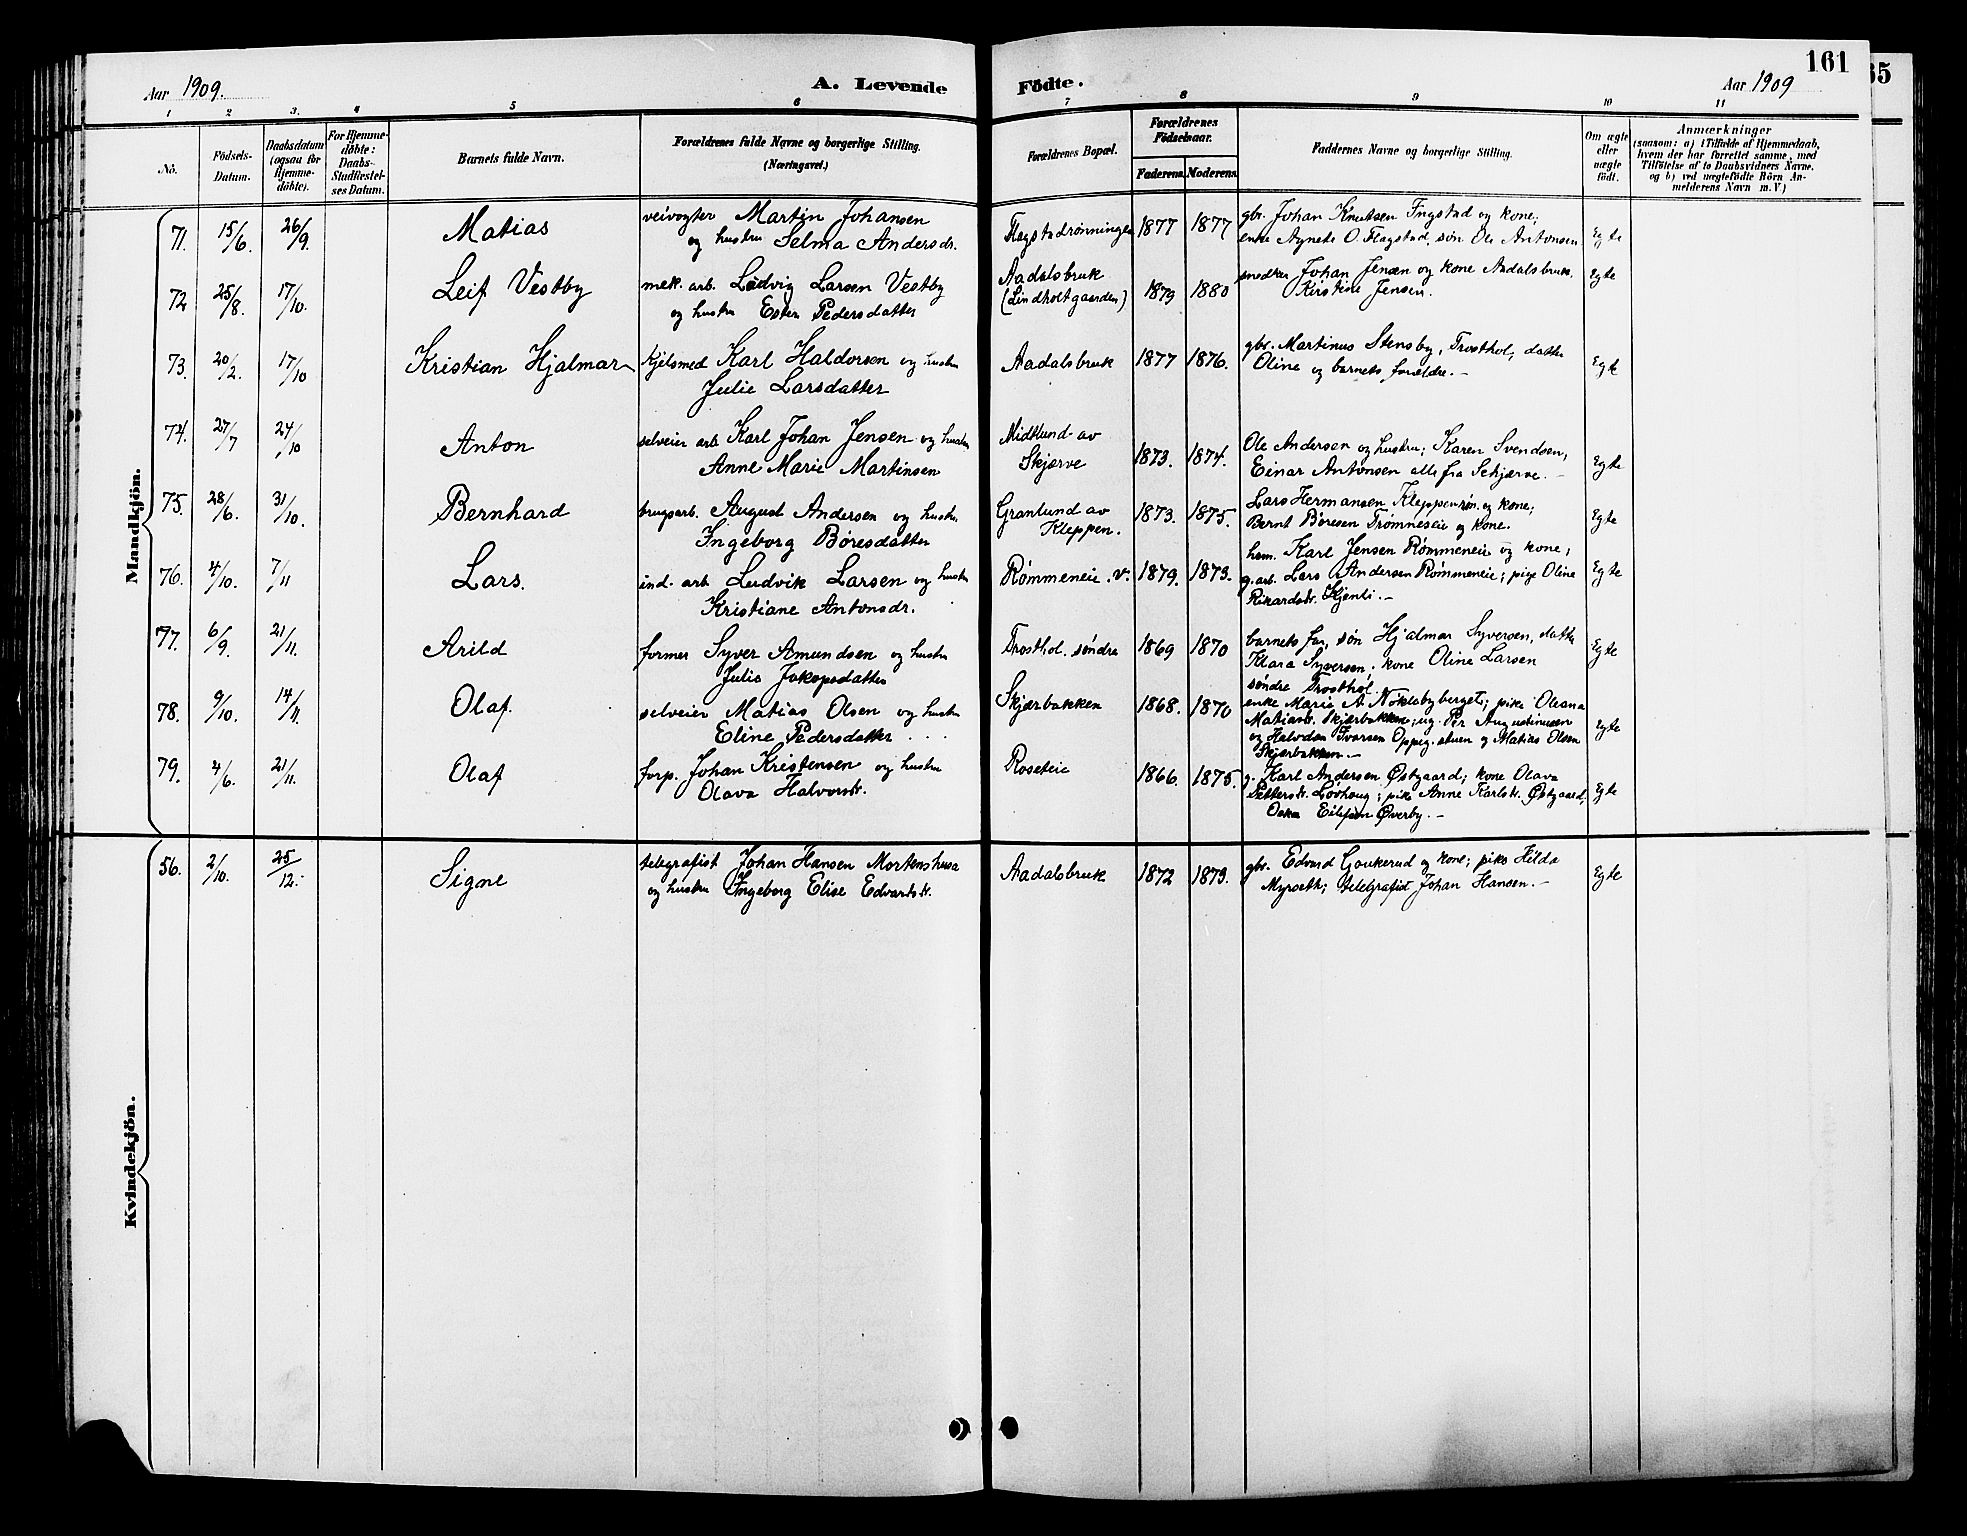 Aar 1909.
A. Levende
Födte.
161
Aar 1909
35
1 2 3. 4 5 6 7 8 9 10 11
No.
Födsels-
Datum.
Daabsdatum
(ogsaa for
Hjemme-
döbte).
For Hjemme-
döbte:
Daabs-
Stadfæstel-
ses Datum.
Barnets fulde Navn.
Forældrenes fulde Navne og borgerlige Stilling.
(Næringsvei.)
Forældrenes Bopæl.
Forældrenes
Födselsaar.
Faderens Moderens
Faddernes Navne og borgerlige Stilling.
Om ægte
eller
uægte
födt.
Anmærkninger
(saasom: a) i Tilfælde af Hjemmedaab,
hvem der har forrettet samme, med
Tilföielse af to Daabsvidners Navne.
og b) ved uægtefödte Börn An-
melderens Navn m. V.)
Mandkjön.
71. 15/6. 26/9. Matias veivogter Martin Johansen
og hustru Selma Andersdr.
Flagstadrønningen 1877 1877 gbr. Johan Knutsen Ingstad og kone;
enke Agnete O. Flagstad, søn Ole Antonsen Egte
72 25/8. 17/10. Leif Vestby mek. arb. Ludvig Larsen Vestby
og hustru Ester Pedersdatter
Aadalsbruk
(Lindholtgaarden) 1879 1880 snedker Johan Jensen og kone Aadalsbruk.
Kirstine Jensen. Egte
73. 20/2. 17/10 Kristian Hjalmar kjelsmed Karl Haldorsen og hustru
Julie Larsdatter
Aadalsbruk 1877 1876. gbr. Martinus Stensby, Trosthol, datter
Oline og barnets forældre. - Egte
74. 27/7 24/10 Anton selveier arb Karl Johan Jensen og hustru
Anne Marie Martinsen
Midtlund av
Skjærve 1873. 1874. Ole Andersen og hustru; Karen Svendsen,
Einar Antonsen alle fra Skjærve. - Egte
75. 28/6. 31/10. Bernhard brugsarb. August Andersen og hustru
Ingeborg Børesdatter
Granlund av
Kleppen. 1873. 1875. Lars Hermansen Kleppenrøn. og kone;
Bernt Børesen Trømneseie og kone. Egte
76. 4/10. 7/11 Lars. ind. arb Ludvik Larsen og hustru
Kristiane Antonsdr.
Rømmeneie. v. 1879. 1873. hem. Karl Jensen Rømmeneie og kone,
g. arb. Lars Andersen Rømmeneie; pige Oline
Rikardsdr. Kjenli. - Egte
77. 6/9. 21/11. Arild former Syver Amundsen og hustru
Julie Jakopsdatter
Trosthol. søndre 1869 1870 barnets far, søn Hjalmar Syversen, datter
Klara Syversen, kone Oline Larsen
søndre Trosthol. Egte
78. 9/10. 14/11. Olaf. selveier Matias Olsen og hustru
Eline Pedersdatter
Skjærbakken 1868. 1870 enke Marie A Nøklebyberget; pike Oleana
Matiasdr. Skjærbakken; ug. Per Augustinusen
og Halvdan Ivarsen Oppig.stuen og Matias Olsen
Skjærbakken - Egte
79. 4/6. 21/11. Olaf forp. Johan Kristensen og hustru
Olava Halvorsdr.
Roseteie 1866. 1875. g. Karl Andersen Østgaard; kone Olava
Pettersdr. Løvhaug; pike Anne Karlsdr. Østgaard,
Eilefsen Øverby. - Egte
Kvindekjön.
56. 2/10. 25/12. Signe telegrafist Johan Hansen Mortenshusa
og hustru Ingeborg Elise Edvardsdr.
Aadalsbruk 1872 1873. gbr. Edvard Gaukerud og kone; pike Hilda
Myrseth; telegrafist Johan Hansen. - Egte